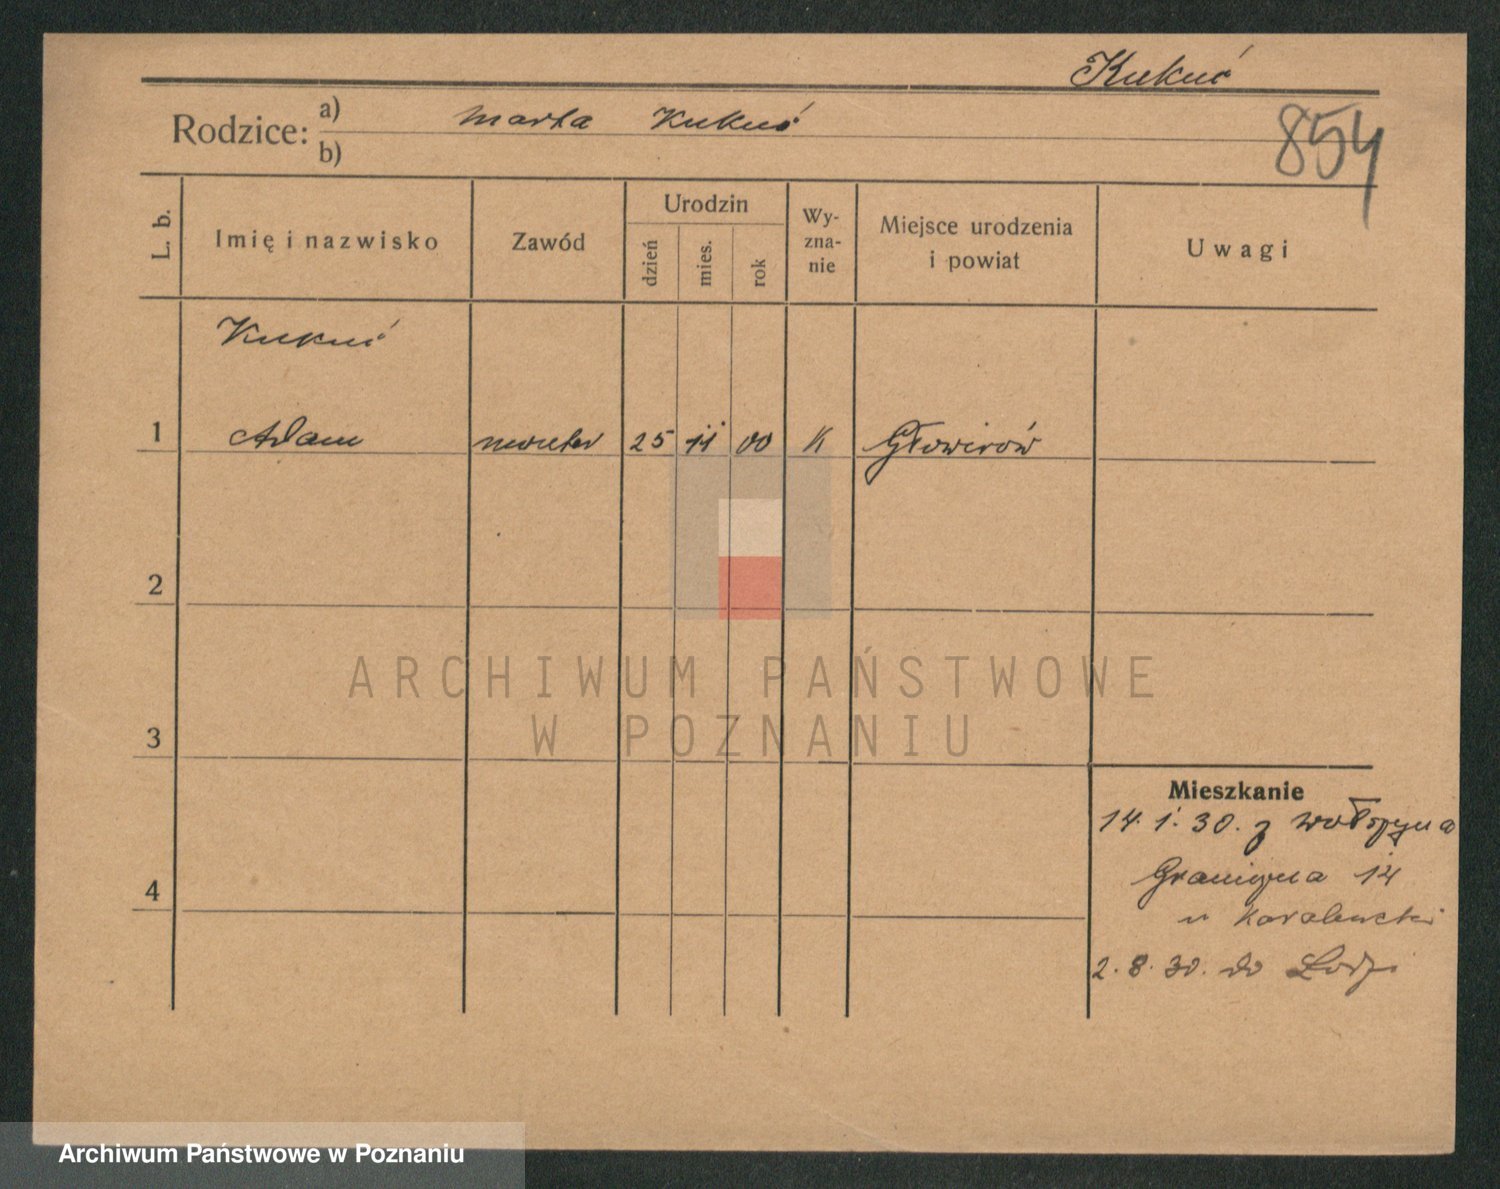 Kukuć
Rodzice: a) Marta Kukuć
b)
854
L. b.
Imię i nazwisko
Zawód
Urodzin
dzień
mies.
rok
Wy-
zna-
nie
Miejsce urodzenia
i powiat
Uwagi
Kukuć
1 Adam monter 25 11 00 K
2
3
4
Mieszkanie
14. 1. 30. z
Graniczna 14
u
2. 8. 30. do Łodzi
ARCHIWUM PAŃSTWOWE
W POZNANIU
Archiwum Państwowe w Poznaniu